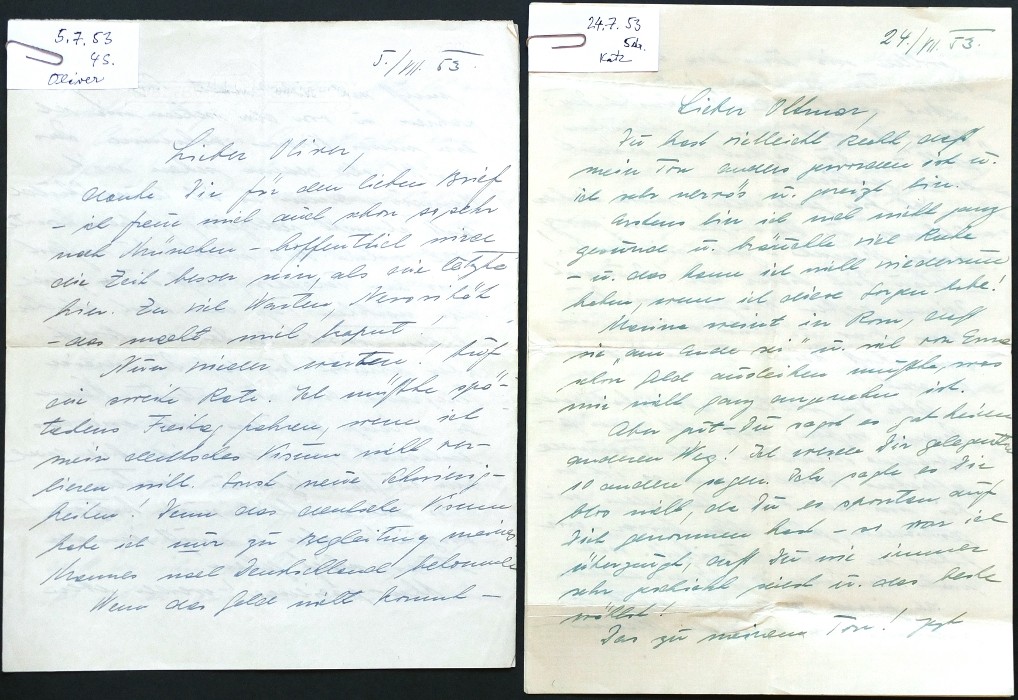 5.7.53
4S.
Oliver
5./VII. 53.
Lieber Oliver,
danke Dir für den lieben Brief
– ich freue mich auch schon so sehr
nach München – hoffentlich wird
die Zeit besser sein, als die letzte
hier. Zu viel Warten, Nervosität
– das macht mich kaput!
Nun wieder warten! Auf
die zweite Rate. Ich müßte spä-
testens Freitag fahren, wenn ich
mein deutsches Visum nicht ver-
lieren will. Sonst neue Schwierig-
keiten! Denn das deutsche Visum
habe ich nur zu Begleitung meines
Mannes nach Deutschland bekommen
Wenn das Geld nicht kommt –
24.7.53
5du.
Katz
24./VII. 53.
Lieber Ottmar,
Du hast vielleicht Recht, daß
mein Ton anders geworden ist u.
ich sehr nervös u. gereizt bin.
Erstens bin ich noch nicht ganz
gesund u. bräuchte viel Ruhe
– u. das kann ich nicht wiederum
haben, wenn ich diese Sorgen habe!
Marina weint in Rom, daß
sie „am Ende sei" u. sich von
schon Geld ausleihen mußte, was
mir nicht ganz angenehm ist.
Aber gut – Du sagst es gibt keinen
anderen Weg! Ich werde Dir gelegentlich
10 andere sagen. Ich sagte es Dir
blos nicht, da Du es spontan auf
Dich genommen hast – so war ich
überzeugt, daß Du wie immer
sehr geschickt seist u. das beste
wählst!
Das zu meinem Ton! jetzt